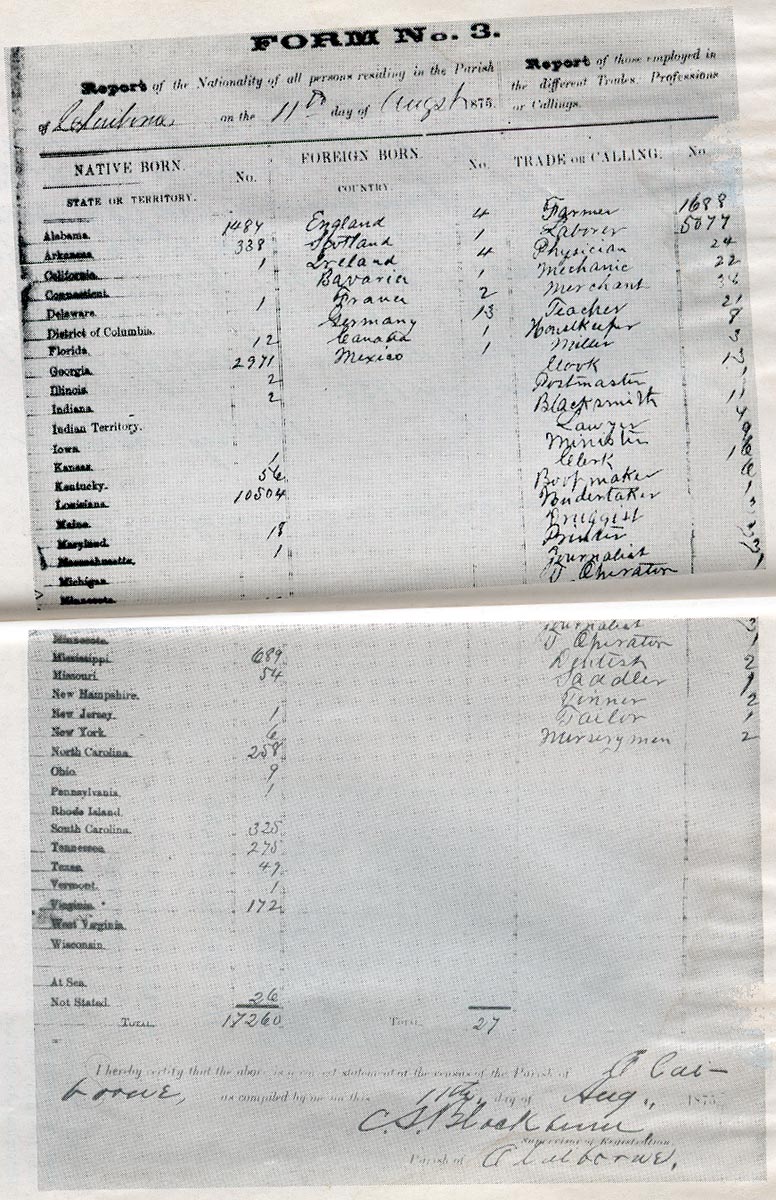 FORM No. 3.
Report of the Nationality of all persons residing in the Parish
of Claiborne on the 11th day of August 1875.
Report of those employed in
the different Trades, Professions
or Callings.
NATIVE BORN. No. FOREIGN BORN. No. TRADE OR CALLING. No.
STATE OR TERRITORY. COUNTRY.
Alabama. 1484 England 4 Farmer 1688
Arkansas. 338 Scotland 1 Laborer 5077
California. 1 Ireland 4 Physician 24
Connecticut. Bavaria 1 Mechanic 22
Delaware. 1 France 2 Merchant
District of Columbia. Germany 13 Teacher 21
Florida. 12 Canada 1 Housekeeper 8
Georgia. 2971 Mexico 1 Miller 3
Illinois. 2 Cook 13
Indiana. 2 Postmaster 1
Indian Territory. Blacksmith 11
Iowa. Lawyer 4
Kansas. 1 Minister 9
Kentucky. 56 Clerk 16
Louisiana. 10504 Bootmaker 6
Maine. Undertaker 1
Maryland. 18 Druggist
Massachusetts. 1 Printer
Michigan. Journalist
Minnesota. T Operator
Minnesota. Journalist 3
Mississippi. 689 T Operator 1
Missouri. 54 Dentist 2
New Hampshire. Saddler 1
New Jersey. 1 Tinner 2
New York. 6 Tailor 1
North Carolina. 258 Nurserymen 2
Ohio. 9
Pennsylvania. 1
Rhode Island.
South Carolina. 325
Tennessee. 275
Texas. 49
Vermont. 1
Virginia. 172
West Virginia.
Wisconsin.
At Sea.
Not Stated. 26
TOTAL. 17260 Total. 27
I hereby certify that the above is a correct statement of the census of the Parish of Clai-
borne, as compiled by me on this 11th day of Aug., 1875.
C. S. Blackburn,
Supervisor of Registration.
Parish of Claiborne.